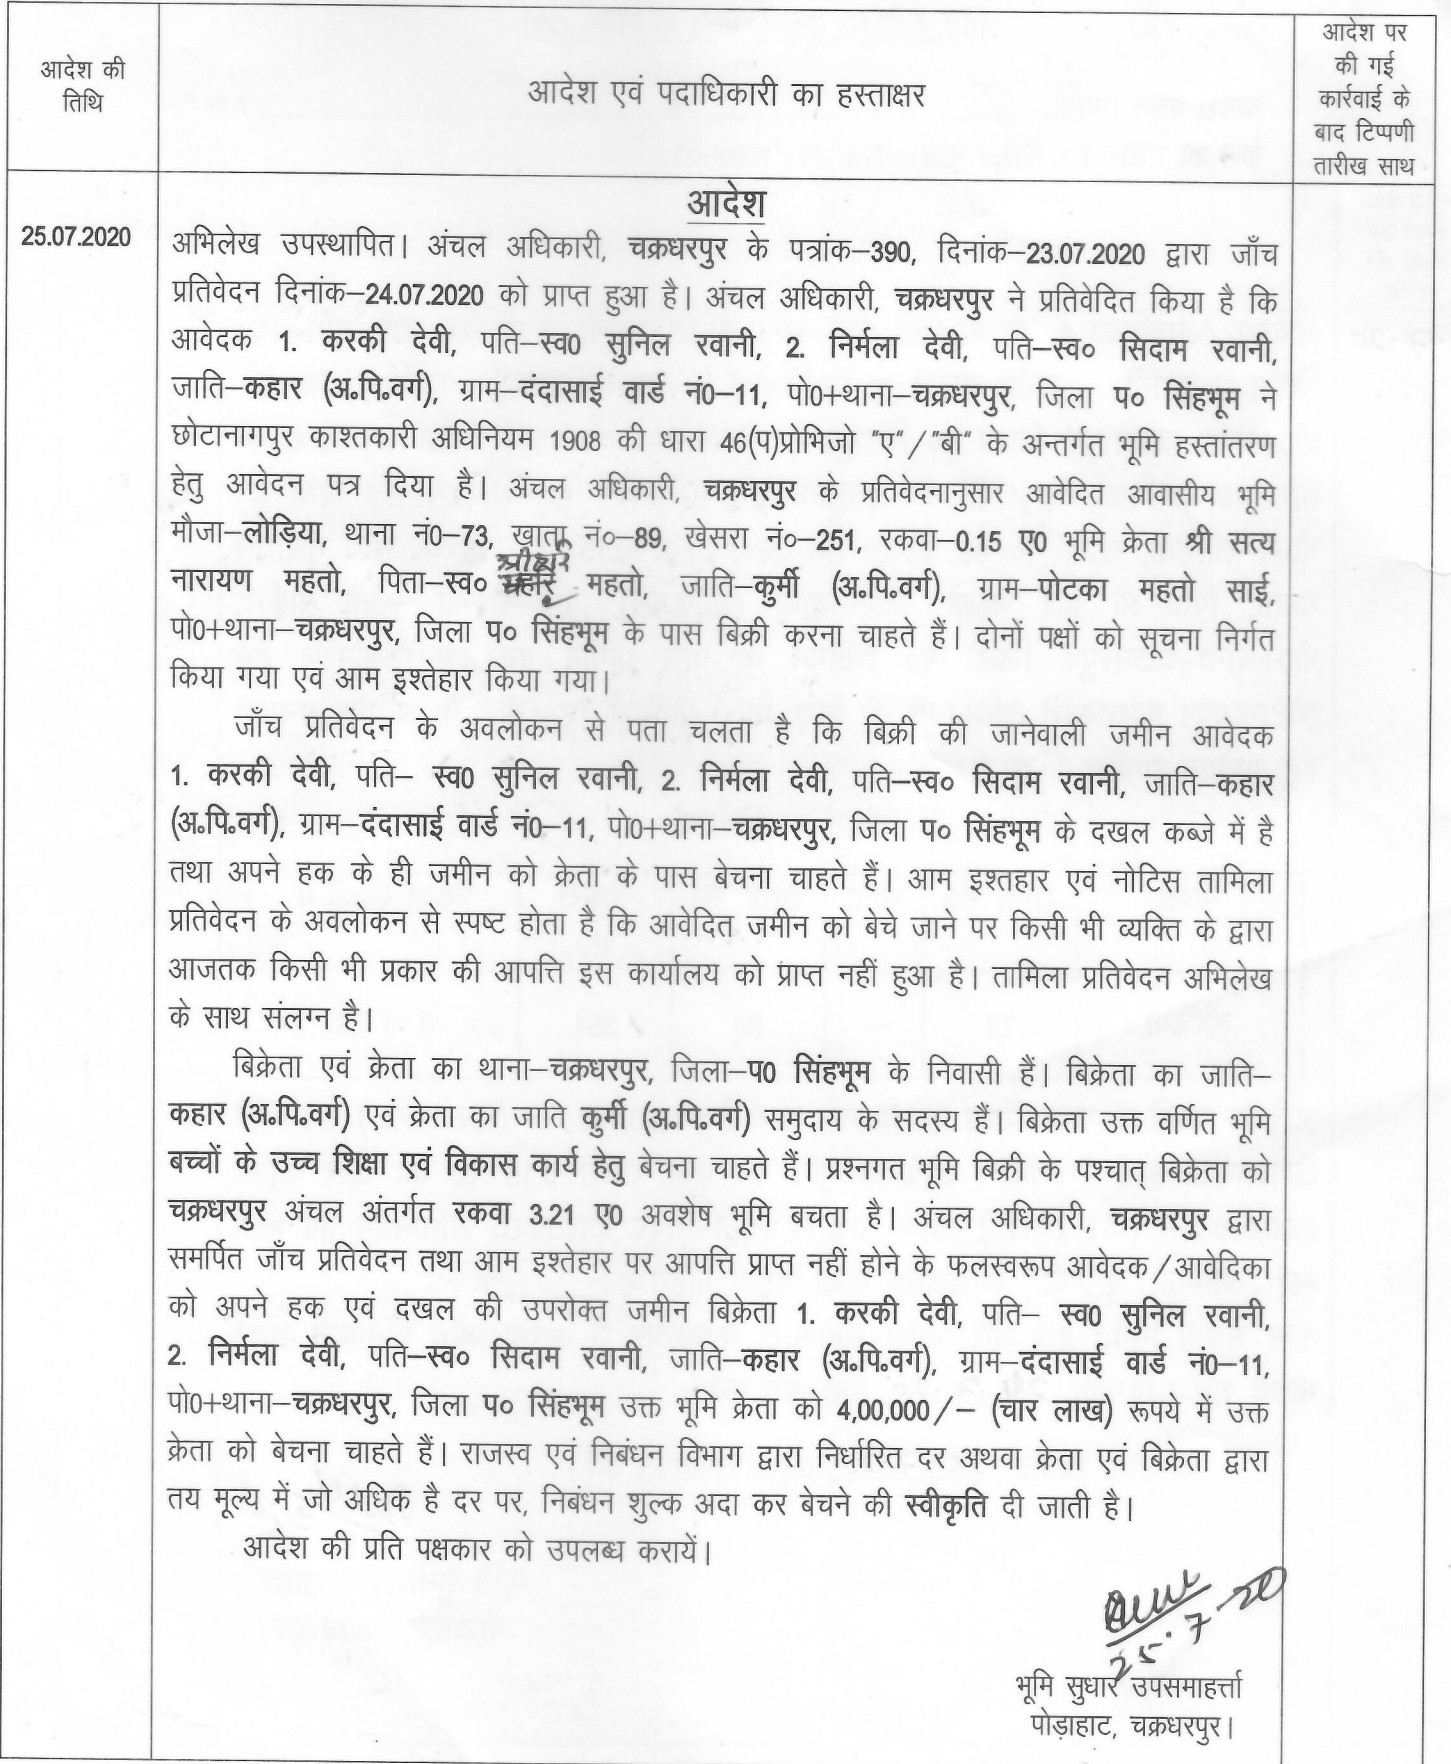 आदेश की
तिथि
आदेश एवं पदाधिकारी का हस्ताक्षर
आदेश पर
की गई
कार्रवाई के
बाद टिप्पणी
तारीख साथ
आदेश
25.07.2020
अभिलेख उपस्थापित। अंचल अधिकारी, चक्रधरपुर के पत्रांक–390, दिनांक–23.07.2020 द्वारा जाँच
प्रतिवेदन दिनांक–24.07.2020 को प्राप्त हुआ है। अंचल अधिकारी, चक्रधरपुर ने प्रतिवेदित किया है कि
आवेदक 1. करकी देवी, पति–स्व0 सुनिल रवानी, 2. निर्मला देवी, पति–स्व० सिदाम रवानी,
जाति–कहार (अ.पि.वर्ग), ग्राम–दंदासाई वार्ड नं0–11, पो0+थाना–चक्रधरपुर, जिला प० सिंहभूम ने
छोटानागपुर काश्तकारी अधिनियम 1908 की धारा 46(प)प्रोभिजो "ए"/"बी" के अन्तर्गत भूमि हस्तांतरण
हेतु आवेदन पत्र दिया है। अंचल अधिकारी, चक्रधरपुर के प्रतिवेदनानुसार आवेदित आवासीय भूमि
मौजा–लोड़िया, थाना नं0–73, खाता नं०–89, खेसरा नं०–251, रकवा–0.15 ए0 भूमि क्रेता श्री सत्य
नारायण महतो, पिता–स्व० महतो, जाति–कुर्मी (अ.पि.वर्ग), ग्राम–पोटका महतो साई,
पो0+थाना–चक्रधरपुर, जिला प० सिंहभूम के पास बिक्री करना चाहते हैं। दोनों पक्षों को सूचना निर्गत
किया गया एवं आम इश्तेहार किया गया।
जाँच प्रतिवेदन के अवलोकन से पता चलता है कि बिक्री की जानेवाली जमीन आवेदक
1. करकी देवी, पति– स्व0 सुनिल रवानी, 2. निर्मला देवी, पति–स्व० सिदाम रवानी, जाति–कहार
(अ.पि.वर्ग), ग्राम–दंदासाई वार्ड नं0–11, पो0+थाना–चक्रधरपुर, जिला प० सिंहभूम के दखल कब्जे में है
तथा अपने हक के ही जमीन को क्रेता के पास बेचना चाहते हैं। आम इश्तहार एवं नोटिस तामिला
प्रतिवेदन के अवलोकन से स्पष्ट होता है कि आवेदित जमीन को बेचे जाने पर किसी भी व्यक्ति के द्वारा
आजतक किसी भी प्रकार की आपत्ति इस कार्यालय को प्राप्त नहीं हुआ है। तामिला प्रतिवेदन अभिलेख
के साथ संलग्न है।
बिक्रेता एवं क्रेता का थाना–चक्रधरपुर, जिला–प0 सिंहभूम के निवासी हैं। बिक्रेता का जाति–
कहार (अ.पि.वर्ग) एवं क्रेता का जाति कुर्मी (अ.पि.वर्ग) समुदाय के सदस्य हैं। बिक्रेता उक्त वर्णित भूमि
बच्चों के उच्च शिक्षा एवं विकास कार्य हेतु बेचना चाहते हैं। प्रश्नगत भूमि बिक्री के पश्चात् बिक्रेता को
चक्रधरपुर अंचल अंतर्गत रकवा 3.21 ए0 अवशेष भूमि बचता है। अंचल अधिकारी, चक्रधरपुर द्वारा
समर्पित जाँच प्रतिवेदन तथा आम इश्तेहार पर आपत्ति प्राप्त नहीं होने के फलस्वरूप आवेदक/आवेदिका
को अपने हक एवं दखल की उपरोक्त जमीन बिक्रेता 1. करकी देवी, पति– स्व0 सुनिल रवानी,
2. निर्मला देवी, पति–स्व० सिदाम रवानी, जाति–कहार (अ.पि.वर्ग), ग्राम–दंदासाई वार्ड नं0–11,
पो0+थाना–चक्रधरपुर, जिला प० सिंहभूम उक्त भूमि क्रेता को 4,00,000/– (चार लाख) रूपये में उक्त
क्रेता को बेचना चाहते हैं। राजस्व एवं निबंधन विभाग द्वारा निर्धारित दर अथवा क्रेता एवं बिक्रेता द्वारा
तय मूल्य में जो अधिक है दर पर, निबंधन शुल्क अदा कर बेचने की स्वीकृति दी जाती है।
आदेश की प्रति पक्षकार को उपलब्ध करायें।
25.7.20
भूमि सुधार उपसमाहर्त्ता
पोड़ाहाट, चक्रधरपुर।